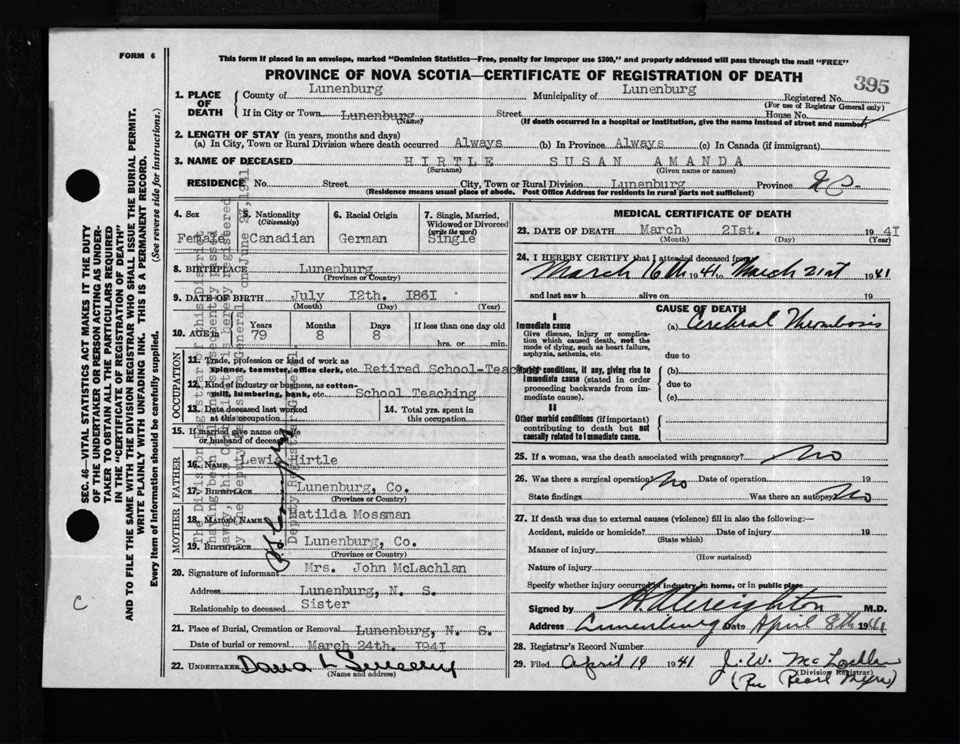 FORM 6
This form if placed in an envelope, marked "Dominion Statistics—Free, penalty for improper use $300," and properly addressed will pass through the mail "FREE"
PROVINCE OF NOVA SCOTIA—CERTIFICATE OF REGISTRATION OF DEATH
395
1. PLACE OF DEATH
County of Lunenburg Municipality of Lunenburg Registered No.
(For use of Registrar General only)
If in City or Town Lunenburg Street House No.
(Name) (If death occurred in a hospital or institution, give the name instead of street and number)
2. LENGTH OF STAY (in years, months and days)
(a) In City, Town or Rural Division where death occurred Always (b) In Province Always (c) In Canada (if immigrant)
3. NAME OF DECEASED HIRTLE SUSAN AMANDA
(Surname) (Given name or names)
RESIDENCE No. Street City, Town or Rural Division Lunenburg Province N.S.
(Residence means usual place of abode. Post Office Address for residents in rural parts not sufficient)
4. Sex Female
5. Nationality (Citizenship) Canadian
6. Racial Origin German
7. Single, Married, Widowed or Divorced (write the word) Single
8. BIRTHPLACE Lunenburg
(Province or Country)
9. DATE OF BIRTH July 12th. 1861
(Month) (Day) (Year)
10. AGE in Years 79 Months 8 Days 8 If less than one day old
hrs. or min.
OCCUPATION
11. Trade, profession or kind of work as spinner, teamster, office clerk, etc. Retired School-Teacher
12. Kind of industry or business, as cotton-mill, lumbering, bank, etc. School Teaching
13. Date deceased last worked at this occupation
14. Total yrs. spent in this occupation
15. If married give name of wife or husband of deceased
FATHER
16. Name Lewis Hirtle
17. Birthplace Lunenburg, Co.
(Province or Country)
MOTHER
18. Maiden Name Matilda Mossman
19. Birthplace Lunenburg, Co.
(Province or Country)
20. Signature of informant Mrs. John McLachlan
Address Lunenburg, N. S.
Relationship to deceased Sister
21. Place of Burial, Cremation or Removal Lunenburg, N. S.
Date of burial or removal March 24th. 1941
22. UNDERTAKER Dana L Sweeny
(Name and address)
MEDICAL CERTIFICATE OF DEATH
23. DATE OF DEATH March 21st. 1941
(Month) (Day) (Year)
24. I HEREBY CERTIFY that I attended deceased from
March 16th 1941 to March 21st 1941
and last saw h alive on 19
CAUSE OF DEATH
I
Immediate cause
Give disease, injury or complication which caused death, not the mode of dying, such as heart failure, asphyxia, asthenia, etc.
(a) Cerebral Thrombosis
due to
Morbid conditions, if any, giving rise to Immediate cause (stated in order proceeding backwards from immediate cause).
(b)
due to
(c)
II
Other morbid conditions (if important) contributing to death but not causally related to immediate cause.
25. If a woman, was the death associated with pregnancy? No
26. Was there a surgical operation? No Date of operation 19
State findings Was there an autopsy No
27. If death was due to external causes (violence) fill in also the following:—
Accident, suicide or homicide? Date of injury 19
(State which)
Manner of injury
(How sustained)
Nature of injury
Specify whether injury occurred in industry, in home, or in public place
Signed by Creighton M.D.
Address Lunenburg Date April 8th 1941
28. Registrar's Record Number
29. Filed April 19 1941 J. W. McLachlan
(Division Registrar)
(Per Pearl
SEC. 46—VITAL STATISTICS ACT MAKES IT THE DUTY
OF THE UNDERTAKER OR PERSON ACTING AS UNDER-
TAKER TO OBTAIN ALL THE PARTICULARS REQUIRED
IN THE "CERTIFICATE OF REGISTRATION OF DEATH"
AND TO FILE THE SAME WITH THE DIVISION REGISTRAR WHO SHALL ISSUE THE BURIAL PERMIT.
WRITE PLAINLY WITH UNFADING INK. THIS IS A PERMANENT RECORD.
Every item of information should be carefully supplied. (See reverse side for instructions.)
C